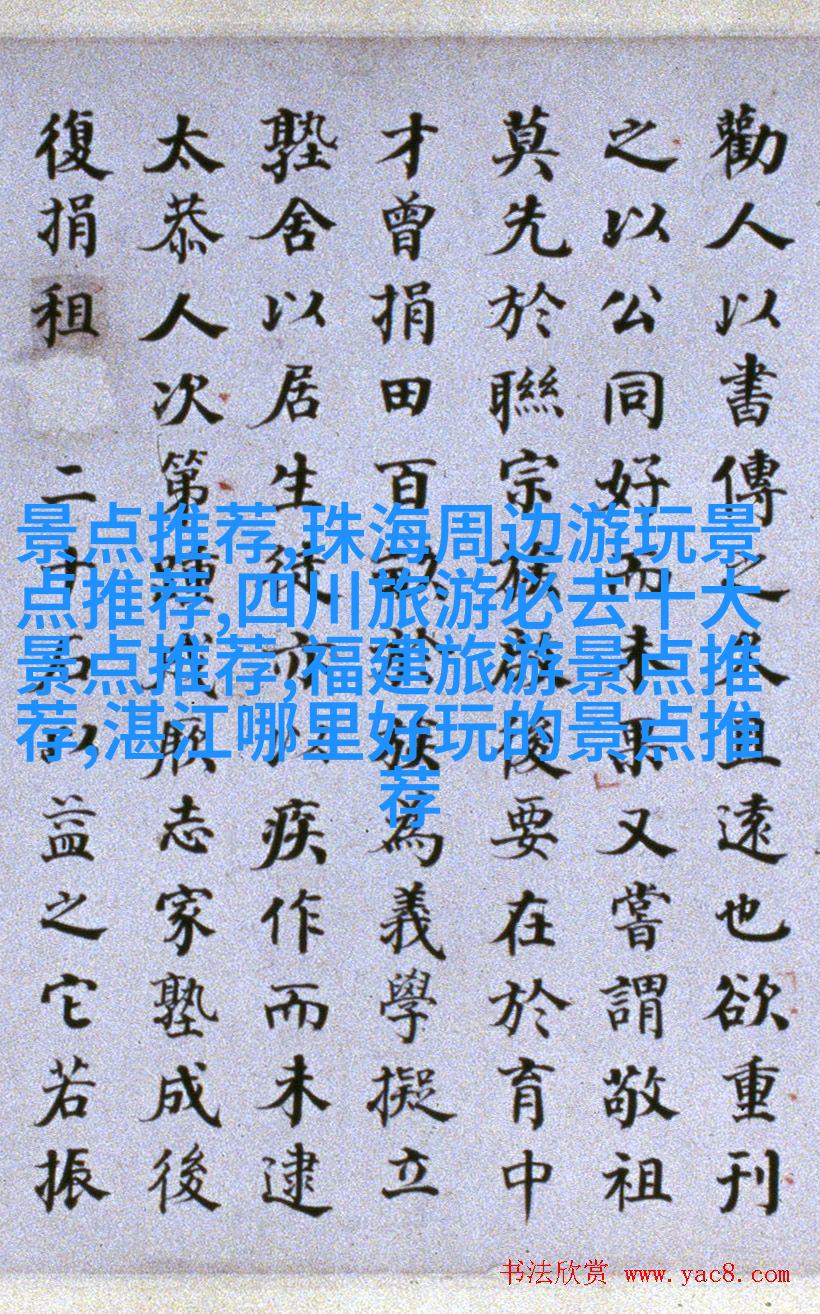 勸人以書傳之久且遠也欲重刊
之以公同好而未果又嘗謂敬祖
莫先於聯宗族後要在於育中
才曾捐田百畝族為義學擬立
塾舍以居生徒亦以疾作而未逮
太恭人次第踵成厥志家塾成後
復捐租二十石以益之它若振
景点推荐,珠海周边游玩景
点推荐,四川旅游必去十大
景点推荐,福建旅游景点推
荐,湛江哪里好玩的景点推
荐
书法欣赏 www.yac8.com